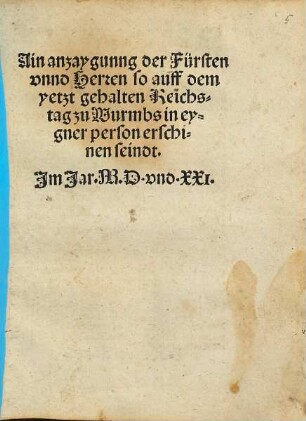 5
Ain anzaygunng der Fürsten
vnnd Herren so auff dem
yetzt gehalten Reichs-
tag zu Wurmbs in ey-
gner person erschi-
nen seindt.
Im Jar. M. D. vnd. XXI.